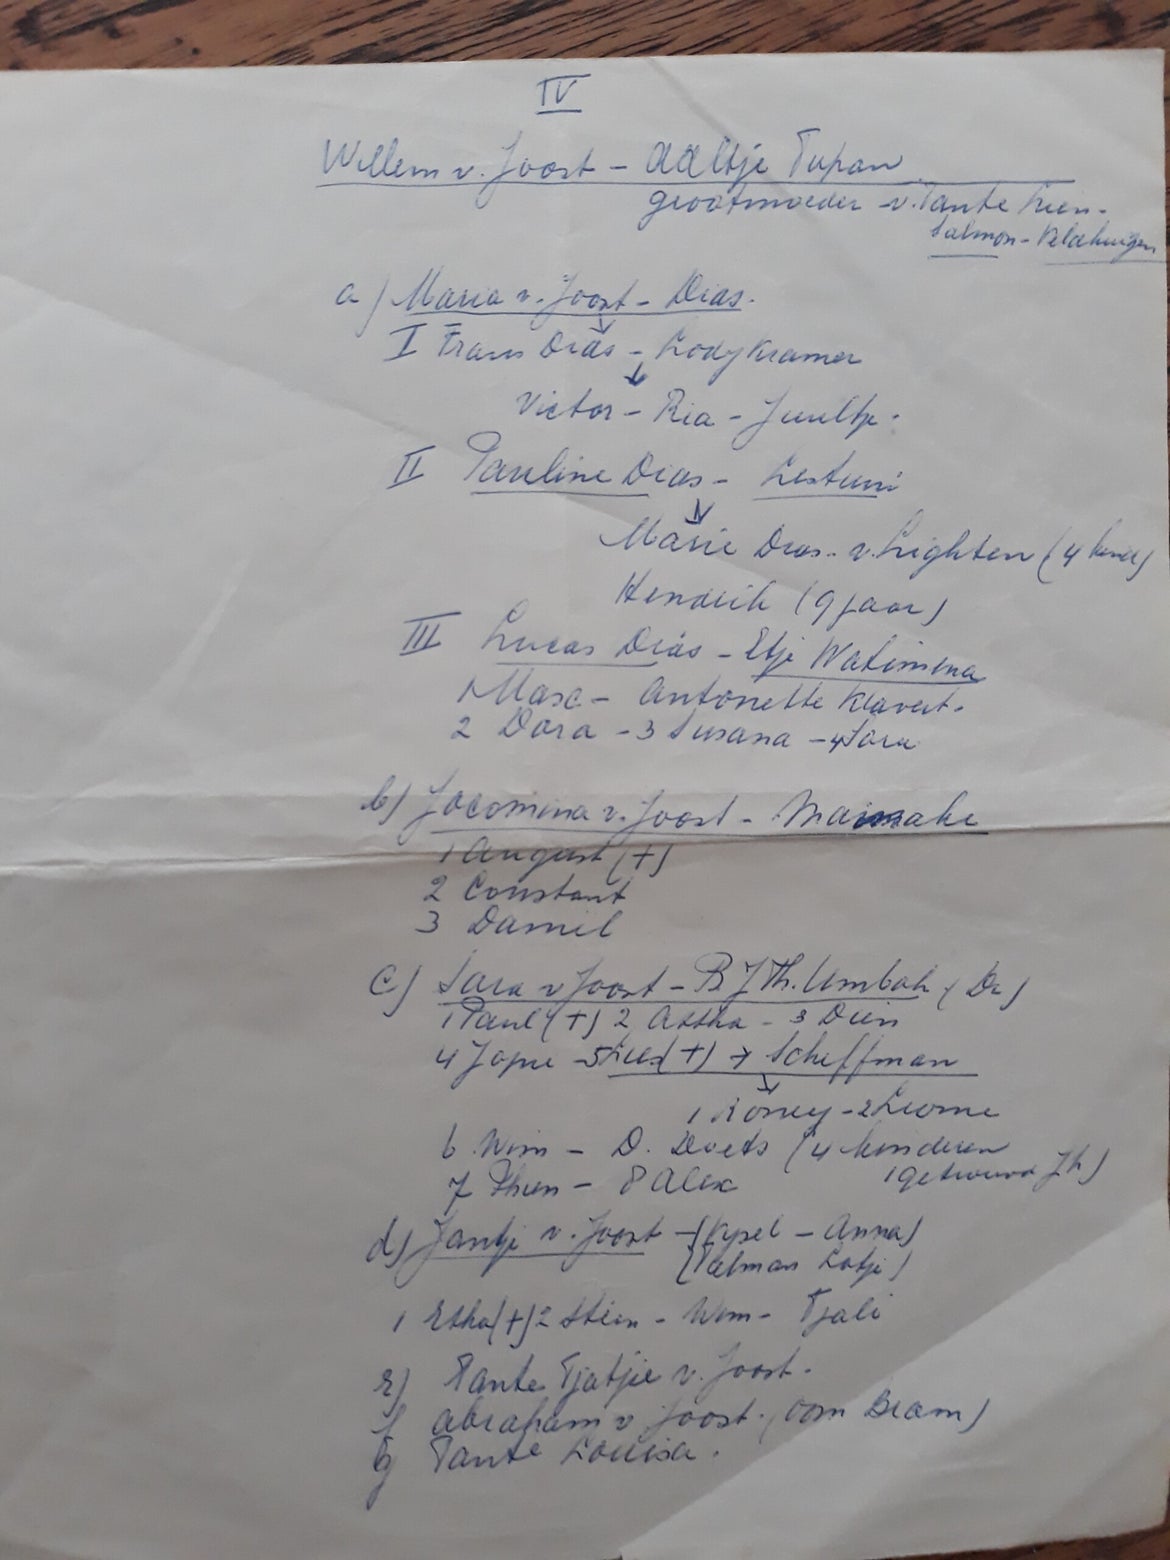 IV
Willem v. Joost - Aaltje Tupan
grootmoeder v. Tante Lien-
Salmon - Veldhuizen
a) Maria v. Joost - Dias.
I Frans Dias - Lody Kramer
Victor - Ria - Jeultje.
II Pauline Dias - Lestuni
Marie Dias - v. Lighten (4 kind)
Hendrik (9 jaar)
III Lucas Dias - Etji Watimena
1 Marc - Antonette Klavert.
2 Dora - 3 Susana - 4 Sara
b) Jacomina v. Joost -
1 August (+)
2 Constant
3 Daniel
c) Sara v Joost - B J Th. Umboh (Dr)
1 Paul (+) 2 Attha - 3 Dien
4 Jopie - 5 (+) → Scheffman
1 Roney - 2 Leonie
6 Wim - D. Doets (4 kinderen
7 Thien - 8 Alex 1 getrouwd Jh)
d) Jantji v. Joost - (Kysel - Anna)
(Salman Lotji)
1 Etha (+) 2 Stien - Wim - Tjali
e) Tante Tjatjie v. Joost.
f Abraham v Joost. (Oom Bram)
g Tante Louisa.